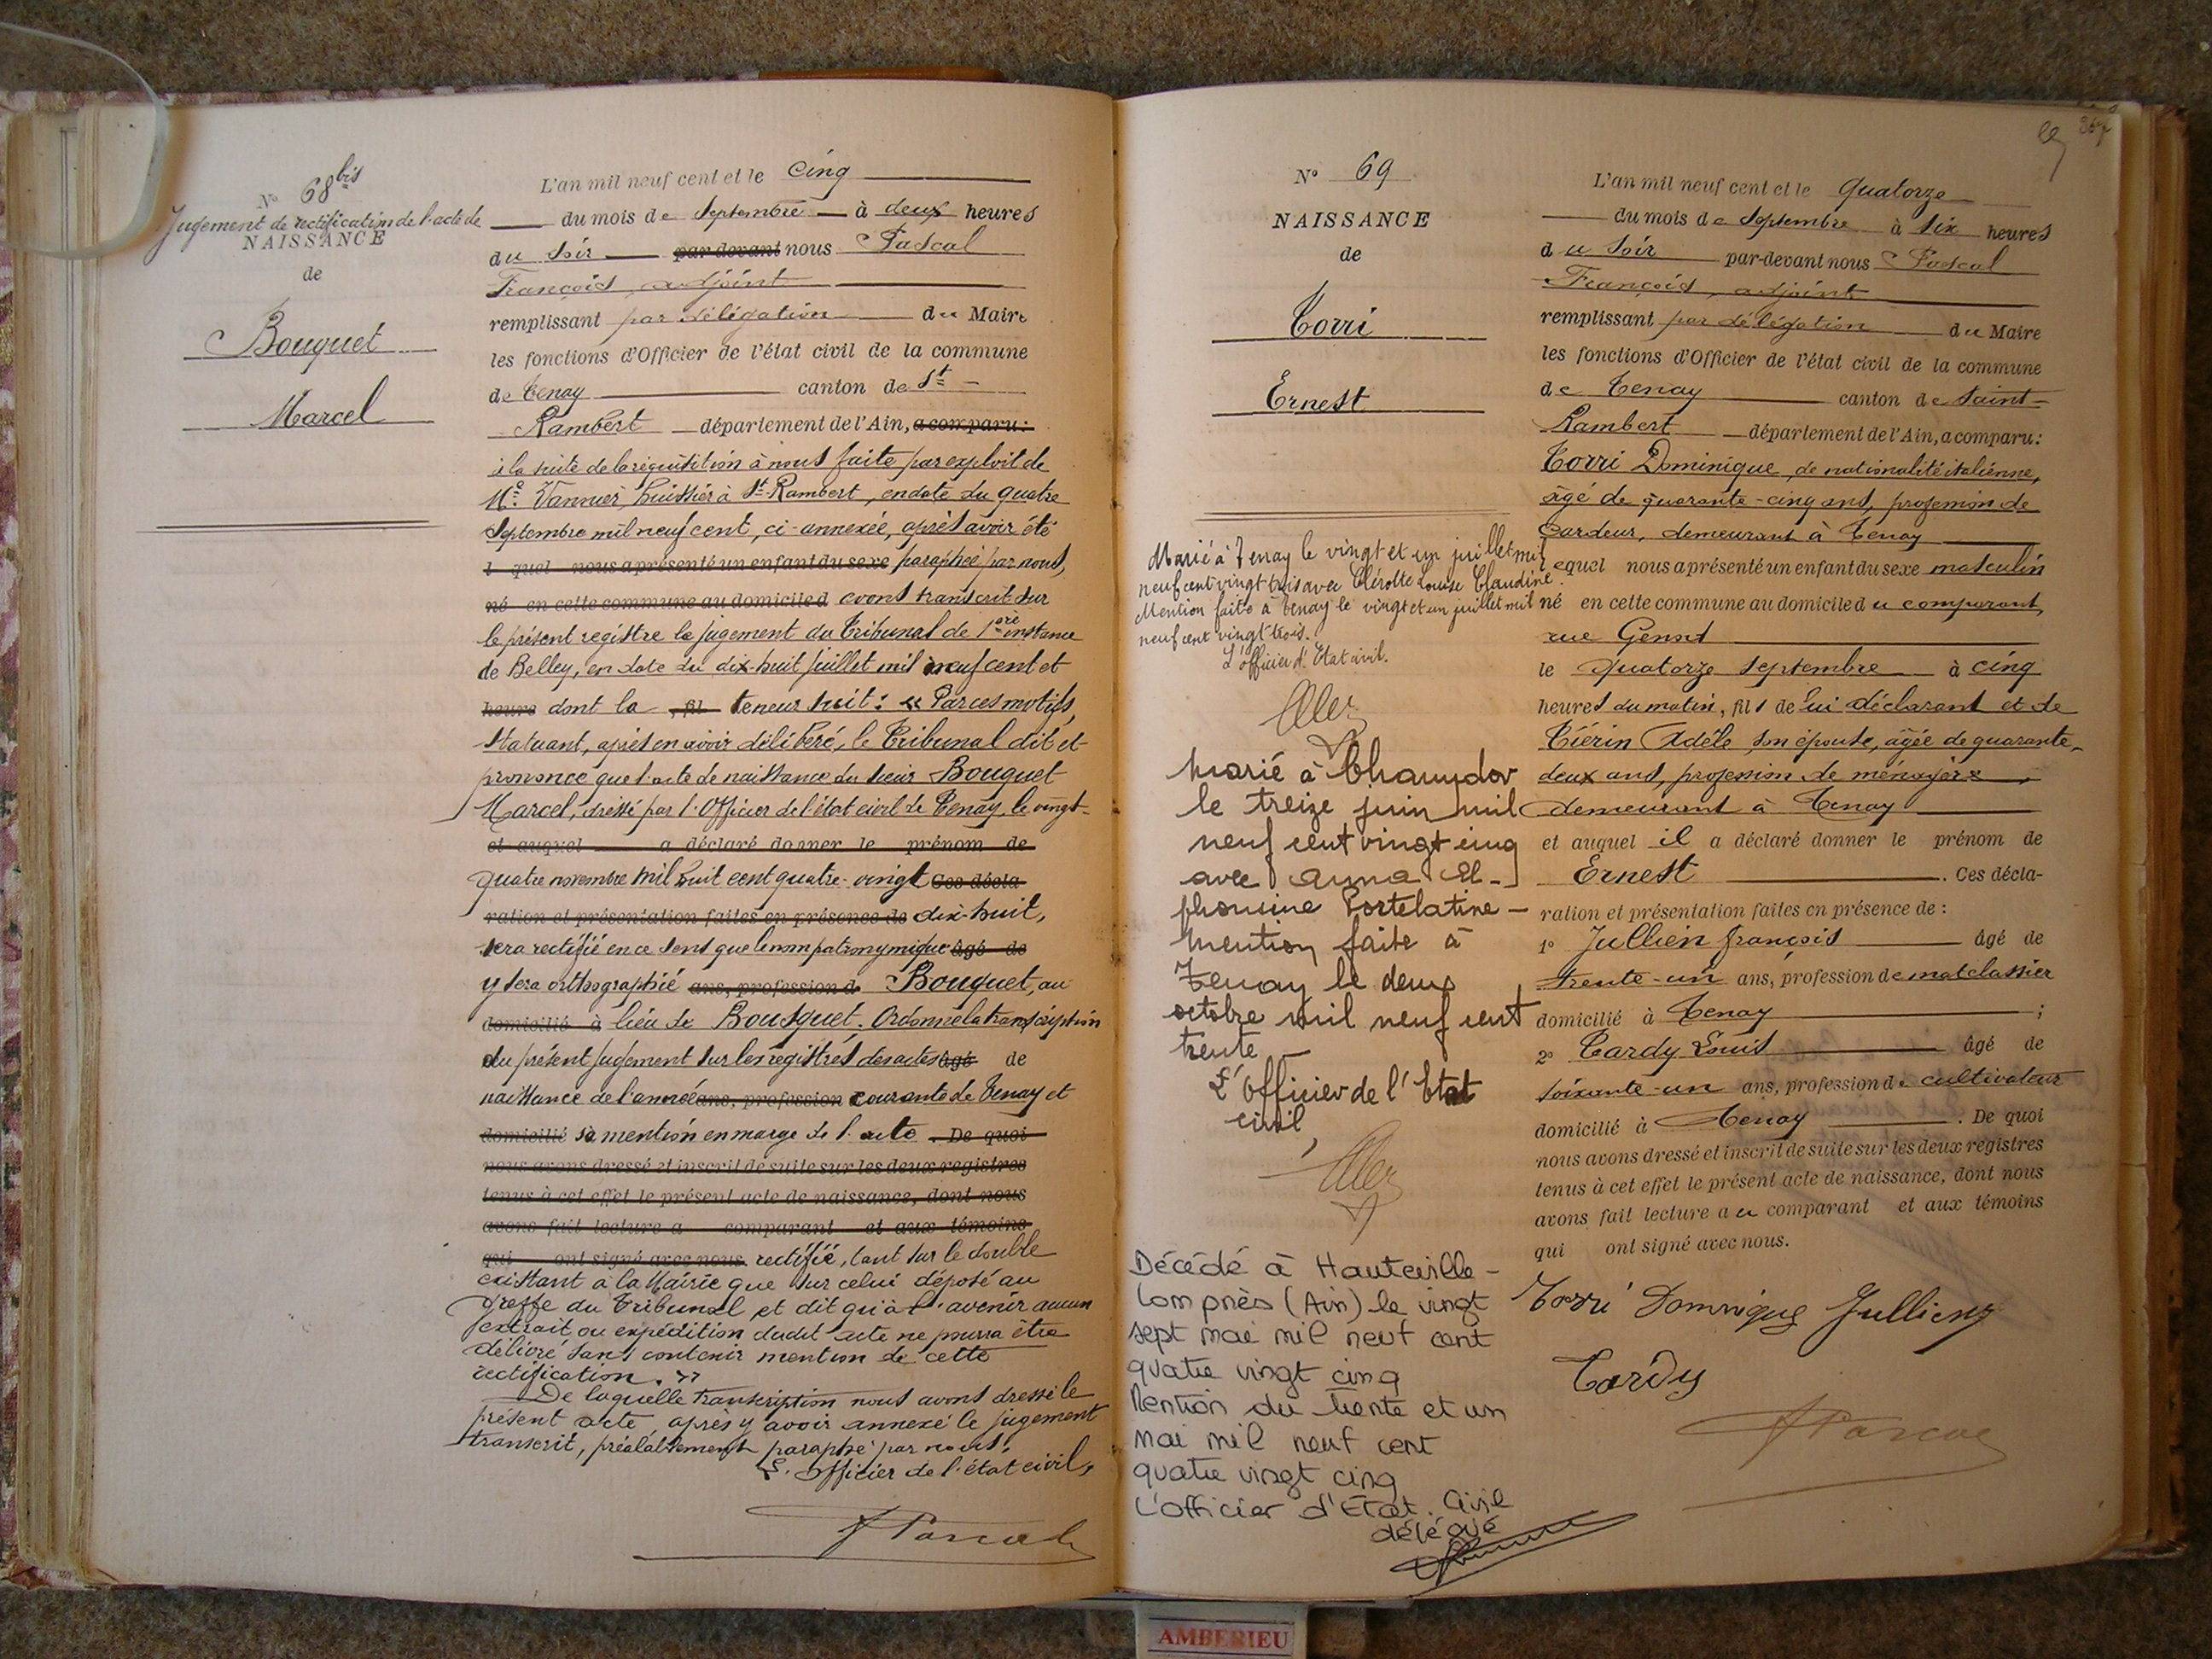 N° 68 bis
Jugement de rectification de l'acte de
NAISSANCE
de
Bouquet
Marcel
L'an mil neuf cent et le cinq
du mois de Septembre à deux heures
du soir par-devant nous Pascal
François, adjoint
remplissant par délégation du Maire
les fonctions d'Officier de l'état civil de la commune
de Tenay canton de St-
Rambert département de l'Ain, a comparu:
à la suite de la réquisition à nous faite par exploit de
Me Vannier, huissier à St-Rambert, en date du quatre
Septembre mil neuf cent, ci-annexée, après avoir été
l quel nous a présenté un enfant du sexe paraphée par nous,
né en cette commune au domicile d avons transcrit sur
le présent registre le jugement du Tribunal de 1ère instance
de Belley, en date du dix-huit juillet mil neuf cent et
heure dont la , fil teneur suit: « Par ces motifs,
Statuant, après en avoir délibéré, le Tribunal dit et
prononce que l'acte de naissance du sieur Bouquet
Marcel, dressé par l'Officier de l'état civil de Tenay, le vingt-
et auquel a déclaré donner le prénom de
quatre novembre mil huit cent quatre-vingt Ces décla-
ration et présentation faites en présence de dix-huit,
sera rectifié en ce sens que le nom patronymique âgé de
y sera orthographié ans, profession d Bouquet, au
domicilié à lieu de Bousquet. Ordonne la transcription
du présent jugement sur les registres des actes âgé de
naissance de l'année ans, profession courante de Tenay et
domicilié sa mention en marge de l'acte . De quoi
nous avons dressé et inscrit de suite sur les deux registres
tenus à cet effet le présent acte de naissance, dont nous
avons fait lecture a comparant et aux témoins
qui ont signé avec nous. rectifié, tant sur le double
existant à la Mairie que sur celui déposé au
greffe du Tribunal et dit qu'à l'avenir aucun
extrait ou expédition dudit acte ne pourra être
délivré sans contenir mention de cette
rectification. »
De laquelle transcription nous avons dressé le
présent acte, après y avoir annexé le jugement
transcrit, préalablement paraphé par nous.
L'officier de l'état civil,
F Pascal
N° 69
NAISSANCE
de
Torri
Ernest
Marié à Tenay le vingt et un juillet mil
neuf cent vingt trois avec Clérotte Louise Claudine.
Mention faite à Tenay le vingt et un juillet mil
neuf cent vingt trois.
L'officier d'Etat civil.
Marié à Champdor
le treize juin mil
neuf cent vingt cinq
avec Anna El-
phonsine Portelatine -
Mention faite à
Tenay le deux
octobre mil neuf cent
trente -
L'officier de l'Etat
civil,
Décédé à Hauteville-
Lompnès (Ain) le vingt
sept mai mil neuf cent
quatre vingt cinq
Mention du trente et un
mai mil neuf cent
quatre vingt cinq
L'officier d'Etat Civil
délégué
L'an mil neuf cent et le quatorze
du mois de Septembre à six heures
du soir par-devant nous Pascal
François, adjoint
remplissant par délégation du Maire
les fonctions d'Officier de l'état civil de la commune
de Tenay canton de Saint-
Rambert département de l'Ain, a comparu:
Torri Dominique, de nationalité italienne,
âgé de quarante-cinq ans, profession de
cardeur, demeurant à Tenay
lequel nous a présenté un enfant du sexe masculin
né en cette commune au domicile du comparant,
rue
le quatorze septembre à cinq
heures du matin, fils de lui déclarant et de
Tiérin Adèle son épouse, âgée de quarante-
deux ans, profession de ménagère,
demeurant à Tenay
et auquel il a déclaré donner le prénom de
Ernest . Ces décla-
ration et présentation faites en présence de:
1° Jullien françois âgé de
trente-un ans, profession de matelassier
domicilié à Tenay ;
2° Tardy Louis âgé de
soixante-un ans, profession de cultivateur
domicilié à Tenay . De quoi
nous avons dressé et inscrit de suite sur les deux registres
tenus à cet effet le présent acte de naissance, dont nous
avons fait lecture au comparant et aux témoins
qui ont signé avec nous.
Torri Dominique Jullien
Tardy
F Pascal
AMBERIEU